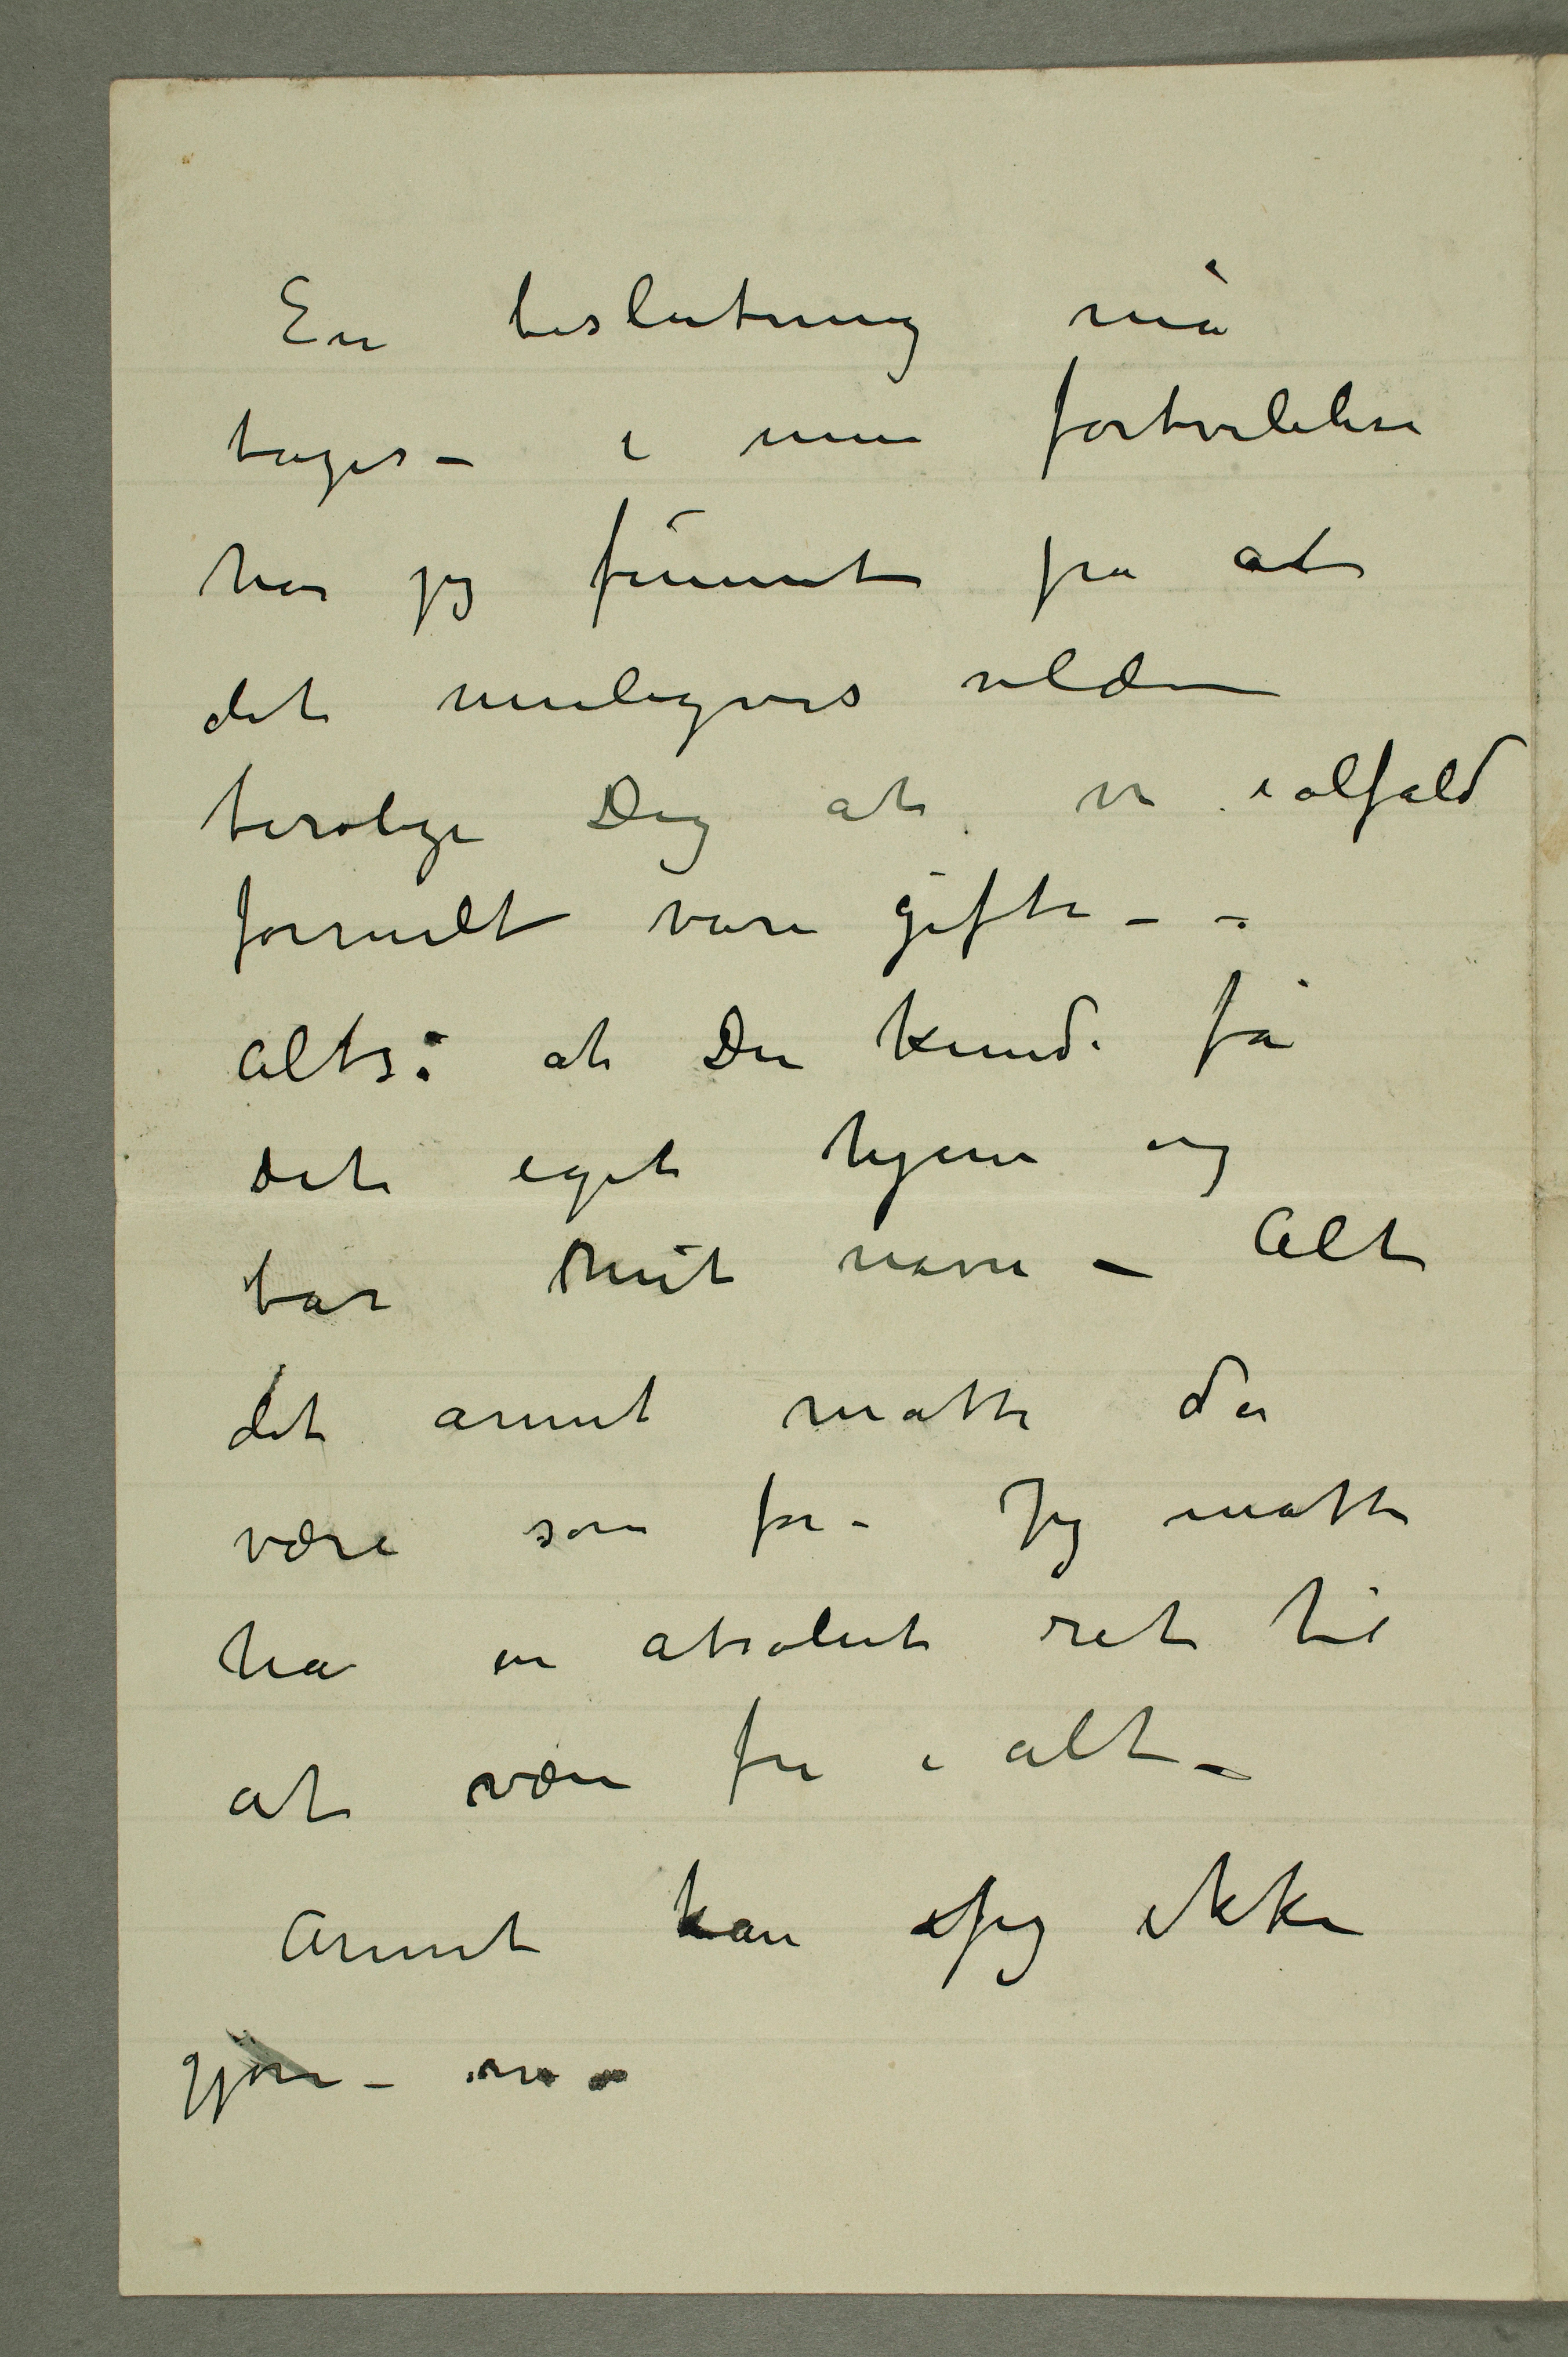 En beslutning må
tages – i min fortvilelse
har jeg funnet på at
det muligvis vilde
berolige Dig at vi ialfald
formelt vare gifte – –
altså at Du kunde få
dit eget hjem og
bar mit navn – Alt
det annet måtte da
være som før – Jeg måtte
ha en absolut ret til
at være fri i alt –
Annet kan jeg ikke
gjøre –